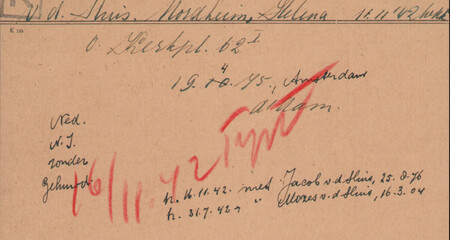 v.d. Sluis. Nordheim, Helena 16.11.'42 
K 122
O. Kerkpl. 62 I
19. 10. '45, Amsterdam
A'dam.
Ned.
N.I.
zonder
Gehuwd
16/11.42
h. 16.11.42. met Jacob v.d. Sluis, 25.8.76
h. 31.7.42 " Mozes v.d. Sluis, 16.3.04